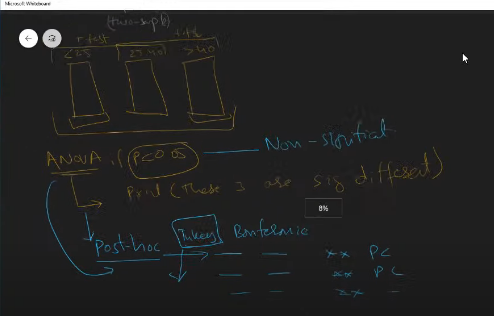 Microsoft Whiteboard
(two-sample)
T test
<25 25-40 >40
ANOVA if P<0.05 Non-significat
Print (These 3 are sig different)
8%
Post-hoc Tukey Bonferronic
xx P<
xx P<
xx